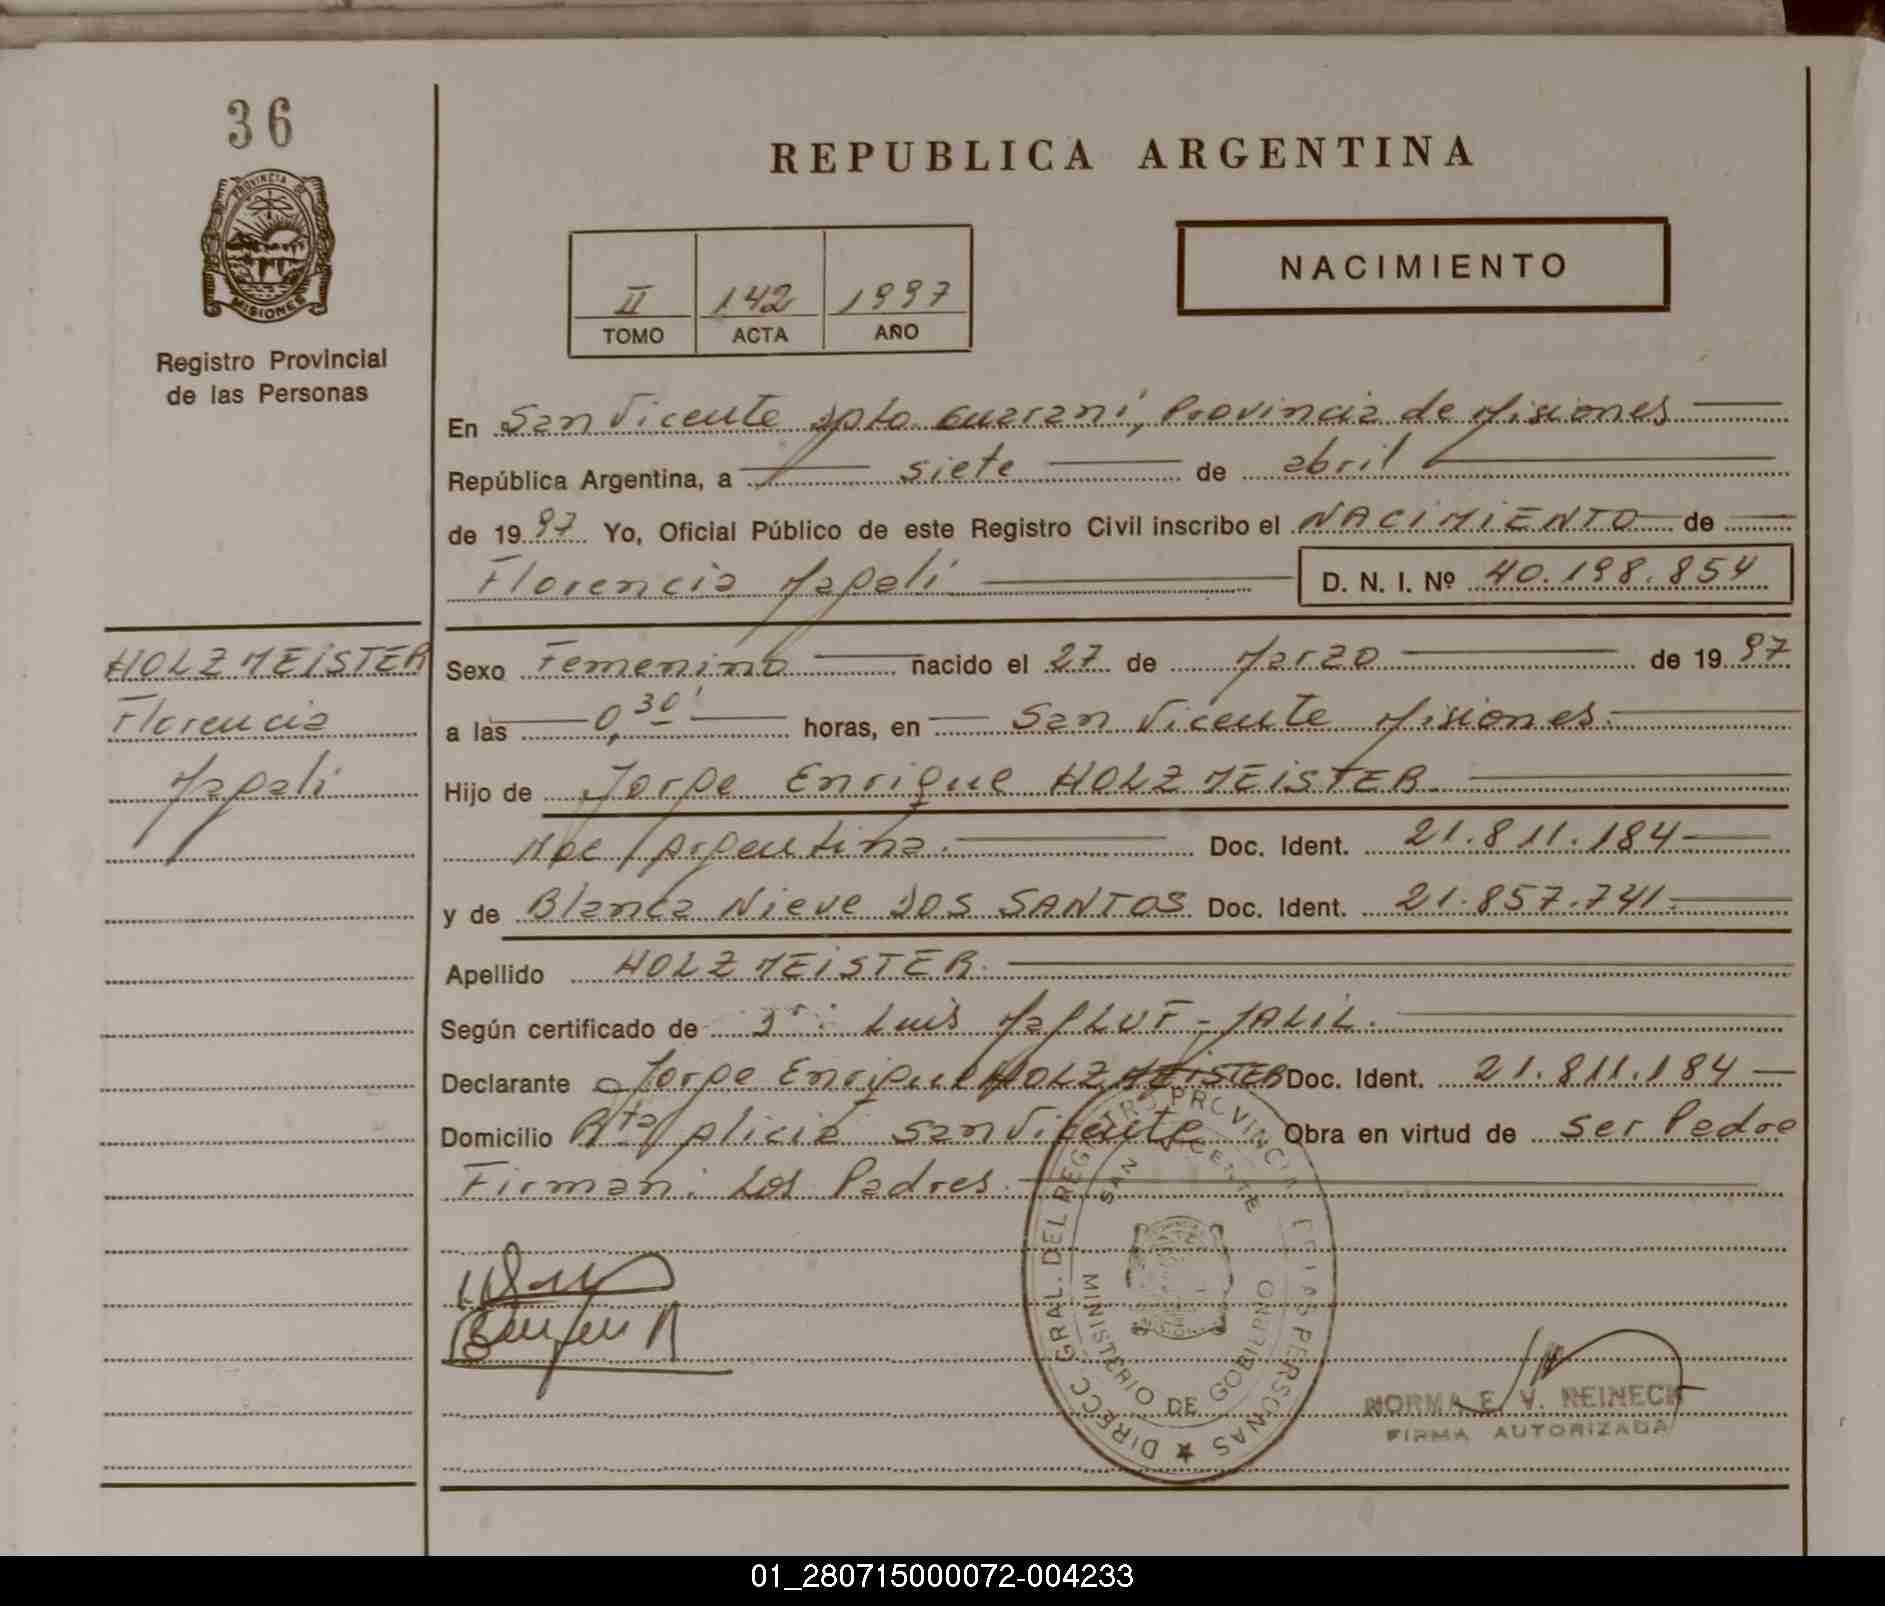 36
REPUBLICA ARGENTINA
PROVINCIA DE
MISIONES
Registro Provincial
de las Personas
II 142 1997
TOMO ACTA AÑO
NACIMIENTO
En San Vicente Dpto Guaraní, Provincia de Misiones
República Argentina, a siete de abril
de 1997 Yo, Oficial Público de este Registro Civil inscribo el NACIMIENTO de
Florencia Magalí D. N. I. Nº 40.198.854
HOLZMEISTER
Florencia
Magalí
Sexo Femenino nacido el 27 de Marzo de 1997
a las 0,30' horas, en San Vicente Misiones.
Hijo de Jorge Enrique HOLZMEISTER.
Argentina. Doc. Ident. 21.811.184
y de Blanca Nieve DOS SANTOS Doc. Ident. 21.857.741.
Apellido HOLZMEISTER.
Según certificado de Dr: Luis MagLUF-JALIL.
Declarante Jorge Enrique HOLZMEISTER Doc. Ident. 21.811.184
Domicilio Rta Alicia San Vicente Obra en virtud de ser Padre
Firman: Los Padres.
DIRECC GRAL. DEL REGISTRO PROVINCIAL DE LAS PERSONAS
SAN VICENTE
MINISTERIO DE GOBIERNO
NORMA E. V. NEINECK
FIRMA AUTORIZADA
01_280715000072-004233